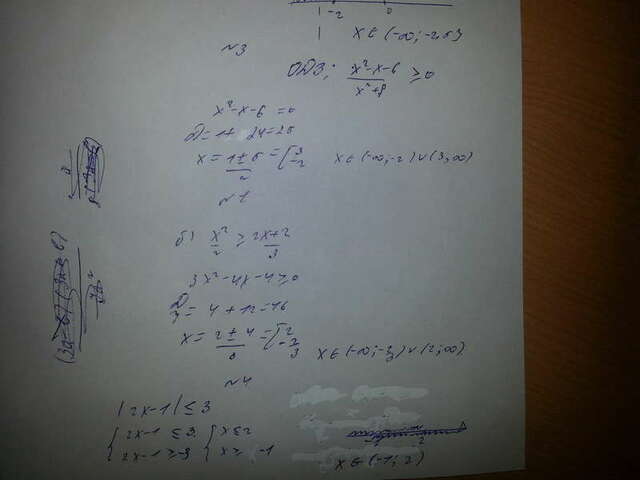 -2 0
x∈(-∞; -2,5}
N3
ОДЗ: x²-x-6/x²+8 ≥ 0
x²-x-6=0
D=1+24=25
x=1±5/2=[3 -2 x∈(-∞,-2)∪(3,∞)
N1
б) x²/2 ≥ 2x+2/3
3x²-4x-4≥0
D/4=4+12=16
x=2±4/3=[2 -2/3 x∈(-∞;-2/3)∪(2;∞)
N4
|2x-1|≤3
{2x-1≤3 {x≤2
{2x-1≥-3 {x≥-1 x∈(-1;2)